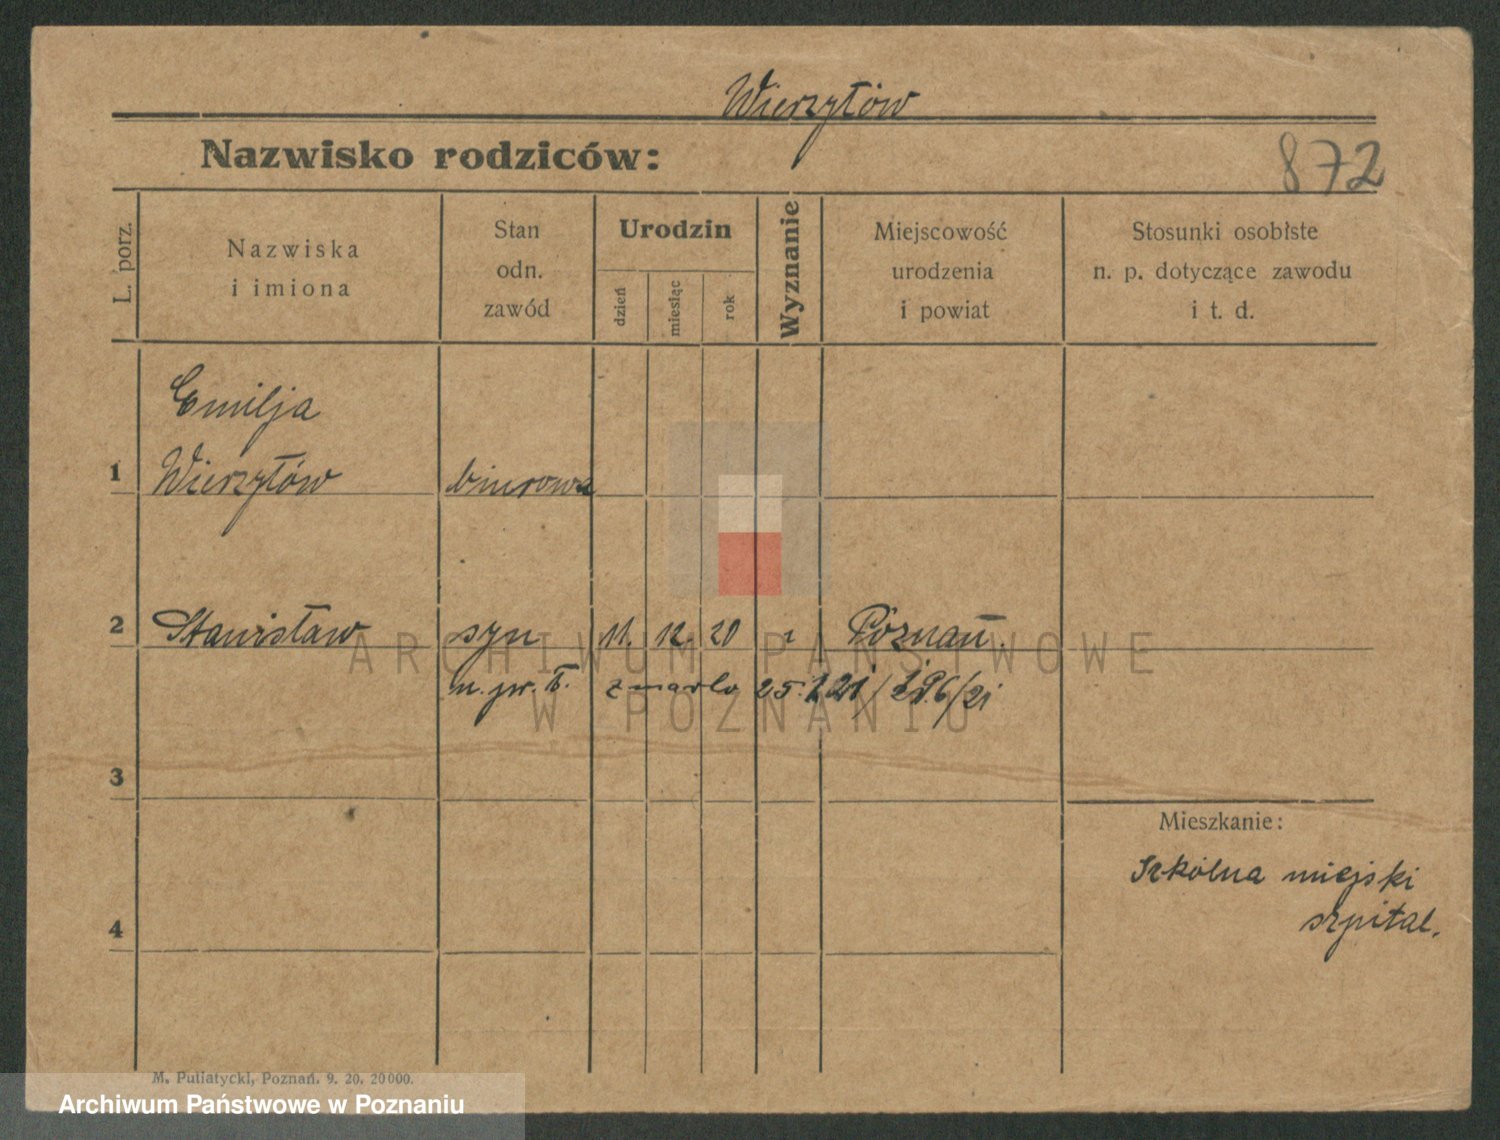 Wierzytów
Nazwisko rodziców:
872
L. porz.
Nazwiska
i imiona
Stan
odn.
zawód
Urodzin
dzień
miesiąc
rok
Wyznanie
Miejscowość
urodzenia
i powiat
Stosunki osobiste
n. p. dotyczące zawodu
i t. d.
Emilja
1 Wierzytów biurowa
2 Stanisław syn 11. 12. 20 Poznań.
zmarło 25.
3
Mieszkanie:
Szkólna miejski
szpital.
4
M. Putiatycki, Poznań. 9. 20. 20000.
ARCHIWUM PAŃSTWOWE
W POZNANIU
Archiwum Państwowe w Poznaniu